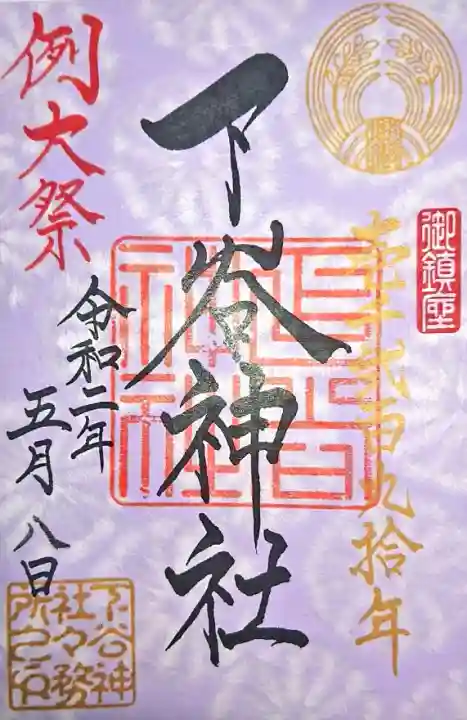 御鎮座
壱千弐百九拾年
下谷神社
下谷神社
例大祭
令和二年
五月八日
下谷神
社々務
所之印